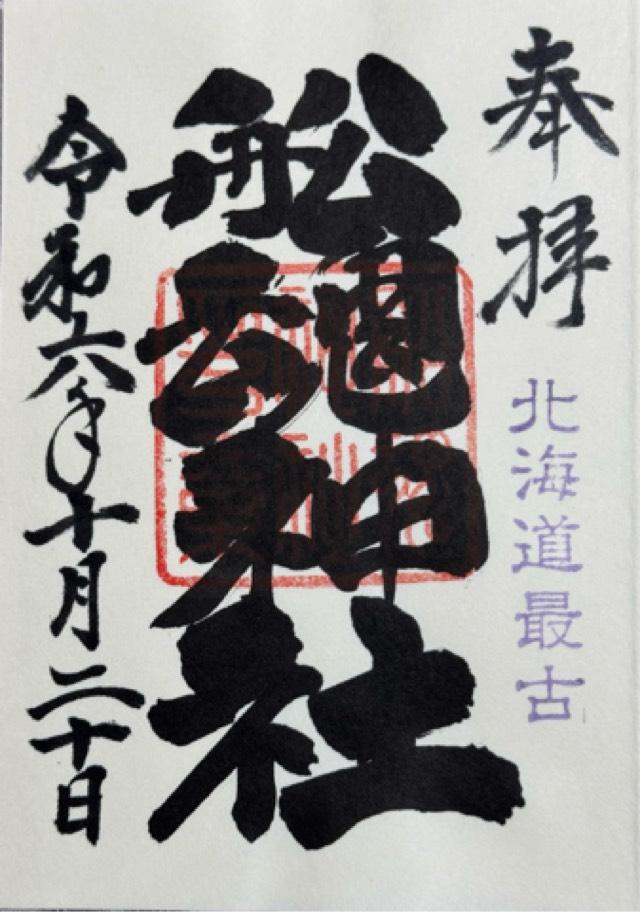 奉拝
北海道最古
船魂神社
令和六年十月二十日